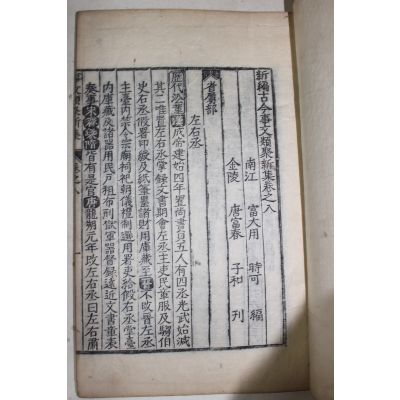 新編古今事文類聚新集卷之八
南江 富大用 時可 編
金陵 唐富春 子和 刋
省屬部
左右丞
歷代沿革漢成帝建始四年置尚書員五人有四丞光武始減
其二唯置左右丞掌錄文書期會左丞主吏民章服及騶伯
史右丞假署印綬及紙筆墨諸財用庫藏至晉不改晉左丞
主臺內禁令宗廟祠祀朝儀禮制選用署吏給假右丞掌臺
內庫藏及諸器用民戶租布刑獄軍器督錄遠近文書章表
奏事宋齊梁陳隋皆有是官唐龍朔元年改左右丞曰左右肅
卷之八